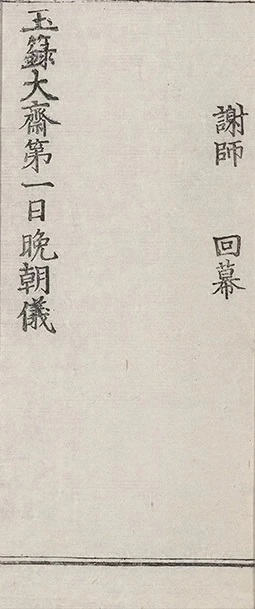 謝師 回幕
玉籙大齋第一日晚朝儀